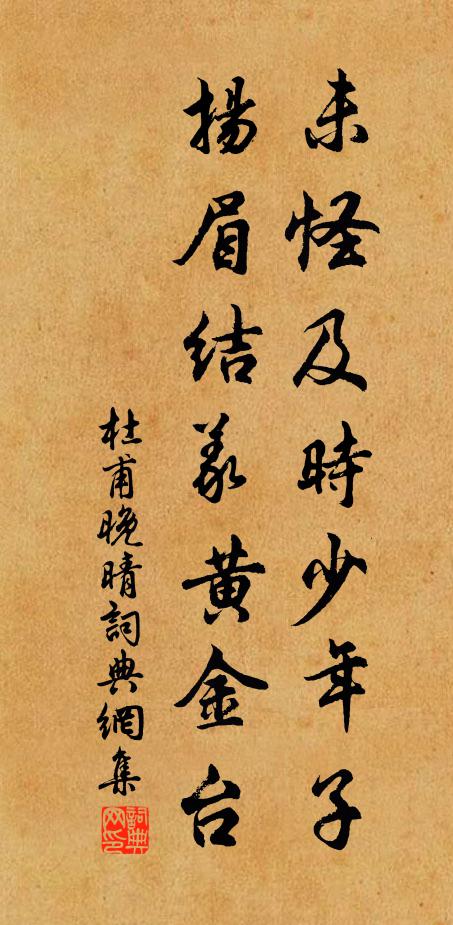 未怪及時少年子
揚眉結義黃金台
杜甫晚晴詞典網集
詞典网印